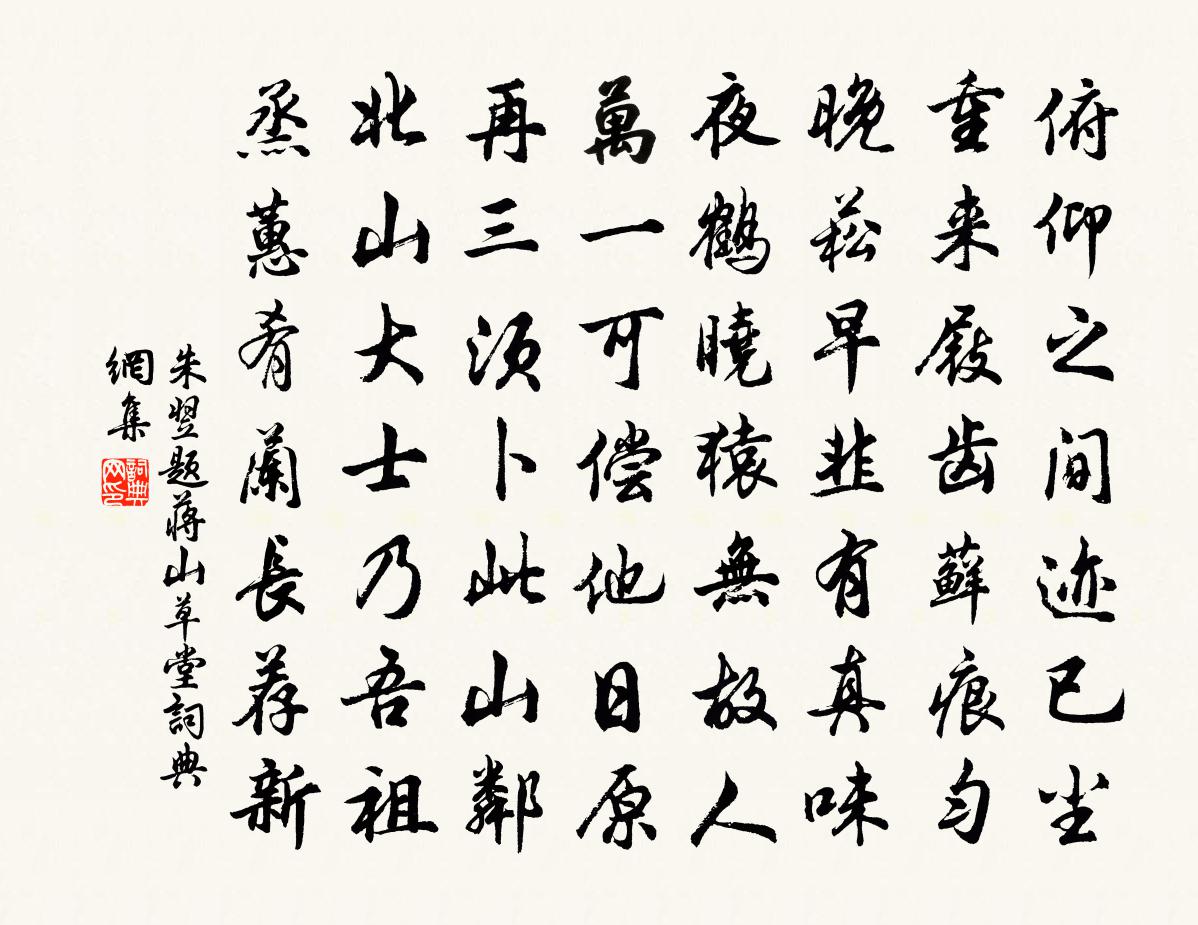 俯仰之间迹已尘
重来屐齿藓痕匀
晚菘早韭有真味
夜鹤晓猿無故人
萬一可偿他日原
再三须卜此山鄰
北山大士乃吾祖
烝蕙肴蘭長荐新
朱翌题蒋山草堂詞典
網集
詞典网印